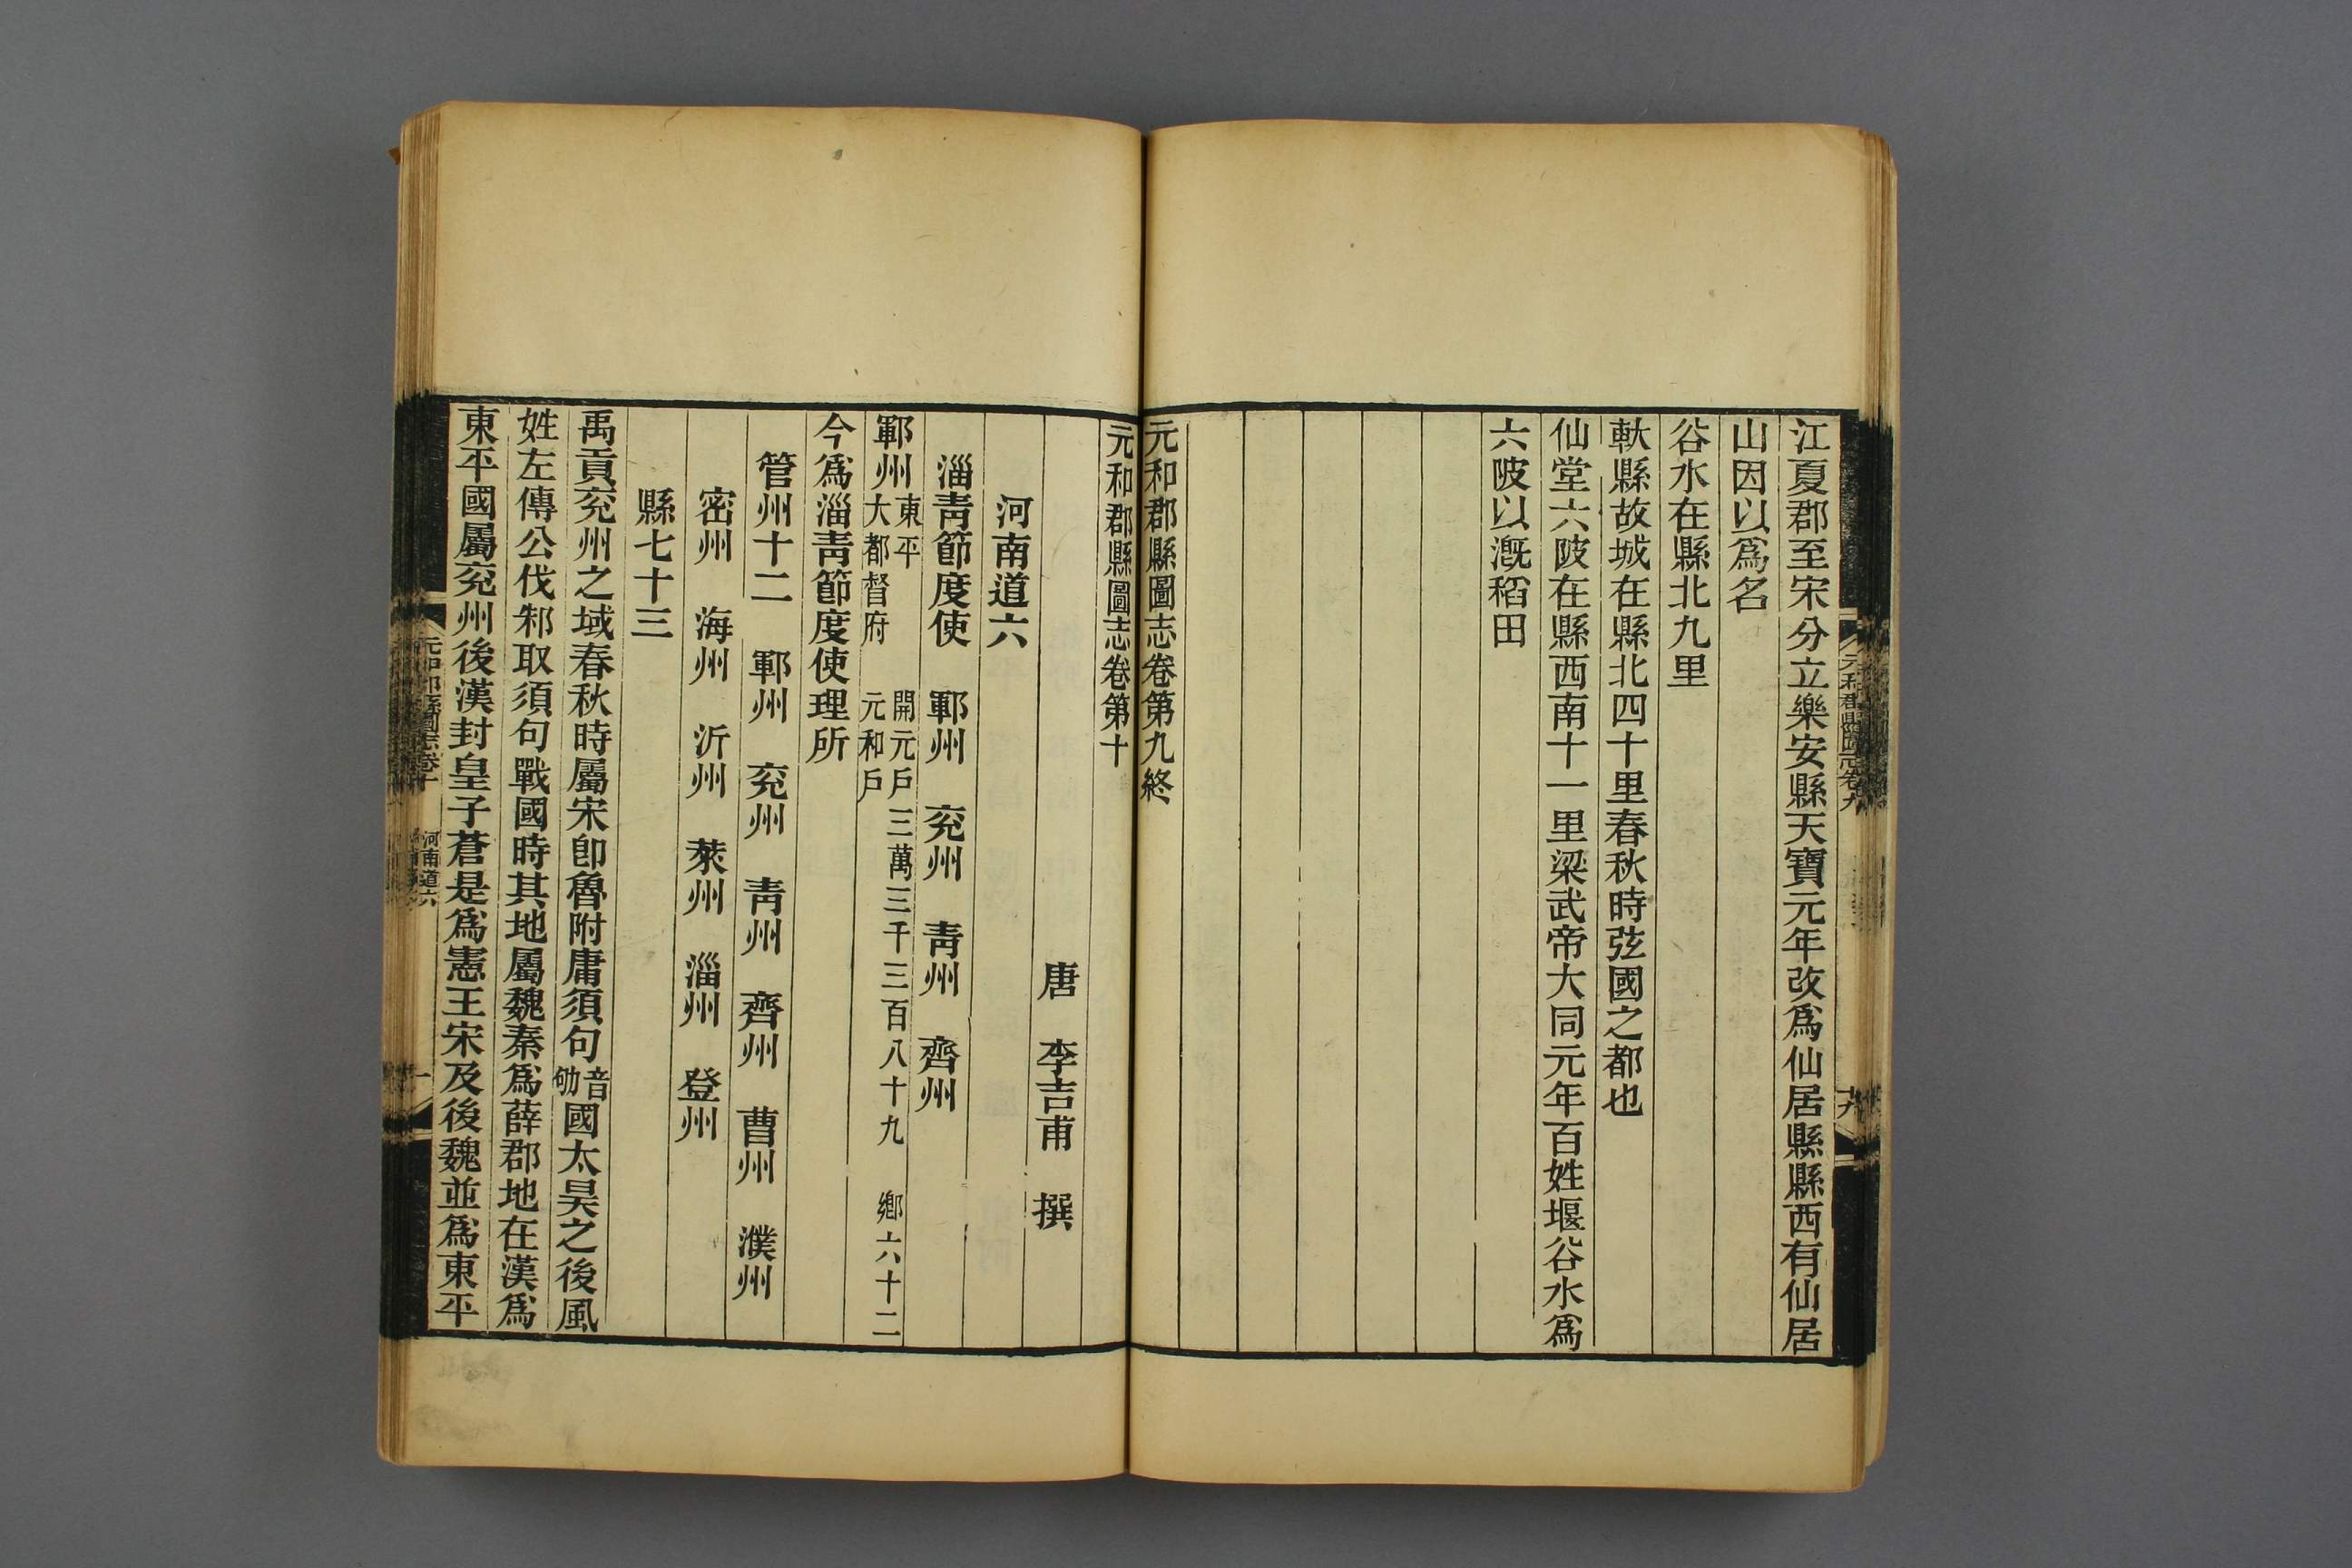 江夏郡至宋分立樂安縣天寶元年改爲仙居縣縣西有仙居
山因以爲名
谷水在縣北九里
軑縣故城在縣北四十里春秋時弦國之都也
仙堂六陂在縣西南十一里梁武帝大同元年百姓堰谷水爲
六陂以漑稻田
元和郡縣圖志卷第九終
元和郡縣圖志卷第十
唐 李吉甫 撰
河南道六
淄靑節度使 鄆州 兖州 靑州 齊州
鄆州 東平 大都督府 開元戶三萬三千三百八十九 鄉六十二 元和戶
今爲淄靑節度使理所
管州十二 鄆州 兖州 靑州 齊州 曹州 濮州
密州 海州 沂州 萊州 淄州 登州
縣七十三
禹貢兖州之域春秋時屬宋卽魯附庸須句音劬國太昊之後風
姓左傳公伐邾取須句戰國時其地屬魏秦爲薛郡地在漢爲
東平國屬兖州後漢封皇子蒼是爲憲王宋及後魏並爲東平
元和郡縣圖志卷十
河南道六
一